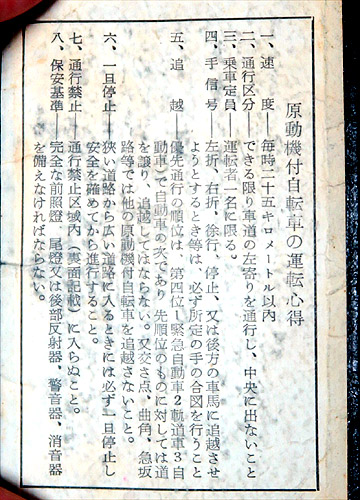 原動機付自転車の運転心得
一、速度――毎時二十五キロメートル以内
二、通行区分――できる限り車道の左寄りを通行し、中央に出ないこと
三、乗車定員――運転者一名に限る。
四、手信号――左折、右折、徐行、停止、又は後方の車馬に追越させ
ようとするとき等は、必ず所定の手の合図を行うこと
五、追越――優先通行の順位は、第四位(1緊急自動車2軌道車3自
動車)で自動車の次であり、先順位のものに対しては道
を譲り、追越してはならない。又交さ点、曲角、急坂
路等では他の原動機付自転車を追越さないこと。
六、一旦停止――狭い道路から広い道路に入るときには必ず一旦停止し
安全を確めてから進行すること。
七、通行禁止――通行禁止区域内(裏面記載)に入らぬこと。
八、保安基準――完全な前照燈、尾燈又は後部反射器、警音器、消音器
を備えなければならない。